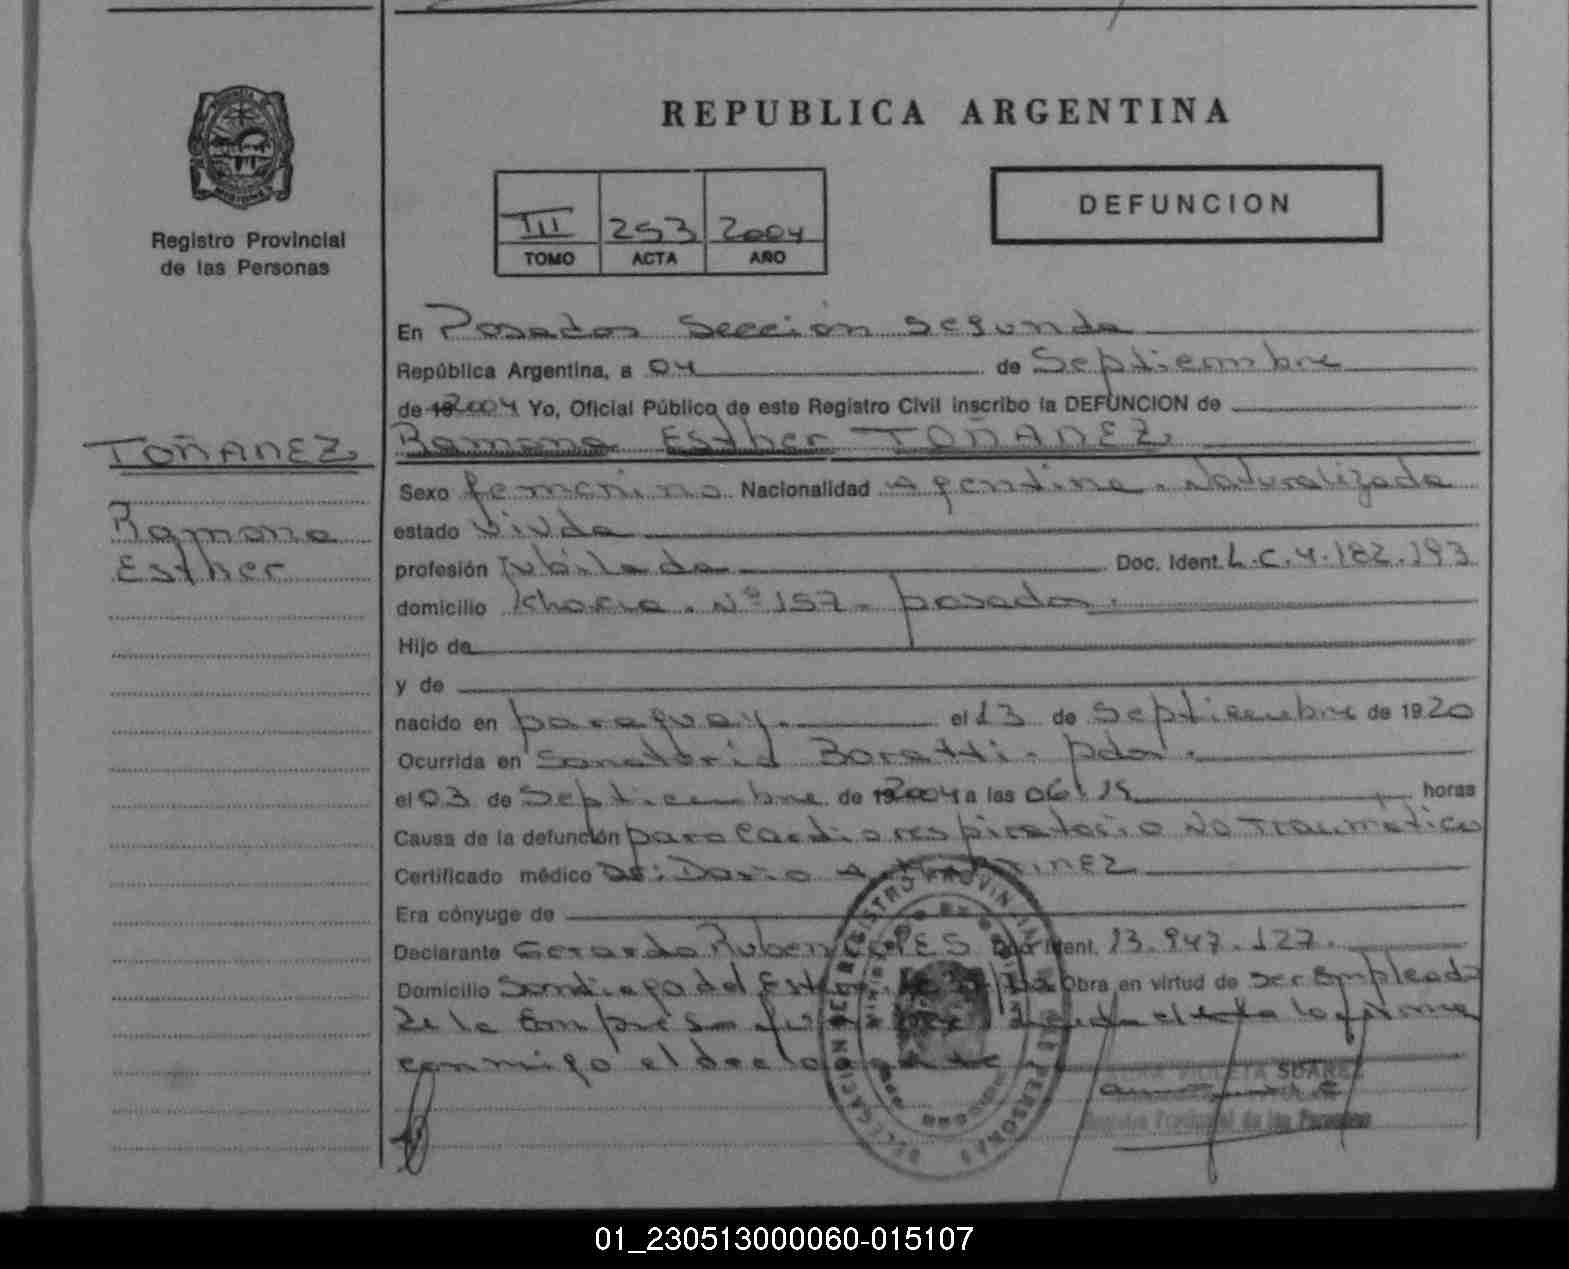 REPUBLICA ARGENTINA
Registro Provincial
de las Personas
III 253 2004
TOMO ACTA AÑO
DEFUNCION
En Posadas Sección Segunda
República Argentina, a 04 de Septiembre
de 19 2004 Yo, Oficial Público de este Registro Civil inscribo la DEFUNCION de
TOÑANEZ
Ramona Esther TOÑANEZ
Ramona
Esther
Sexo femenino Nacionalidad Argentina. Naturalizada
estado Viuda
profesión Jubilada Doc. Ident. L.C. 4.182.193
domicilio Nº 157 - posadas.
Hijo de
y de
nacido en paraguay. el 13 de Septiembre de 1920
Ocurrida en Sanatorio Boratti - pdas.
el 03 de Septiembre de 19 2004 a las 06:15 horas
Causa de la defunción paro Cardiorespiratorio No Traumático
Certificado médico Dr: Dario A
Era cónyuge de
Declarante Gerardo Ruben Ident. 13.947.127.
Domicilio Santiago del Obra en virtud de ser Empleado
De la Empresa la firma
conmigo el declarante
VIOLETA SUAREZ
Registro Provincial de las Personas
DELEGACION DEL REGISTRO PROVINCIAL DE LAS PERSONAS
01_230513000060-015107